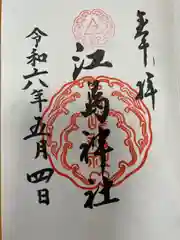 奉拝
江島神社
令和六年五月四日